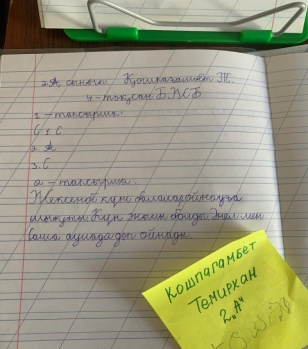 2 "А" сынып Қошпағамбет Т.
4-тоқсан БЖБ
1-тапсырма.
1. С
2. А
3. С
2-тапсырма.
Жексенбі күні балалар ойнауға
шықты. Күн жылы болды. Әлемен
Болат аулада доп ойнады.
Кошпагамбет
Темирхан
2 "А"